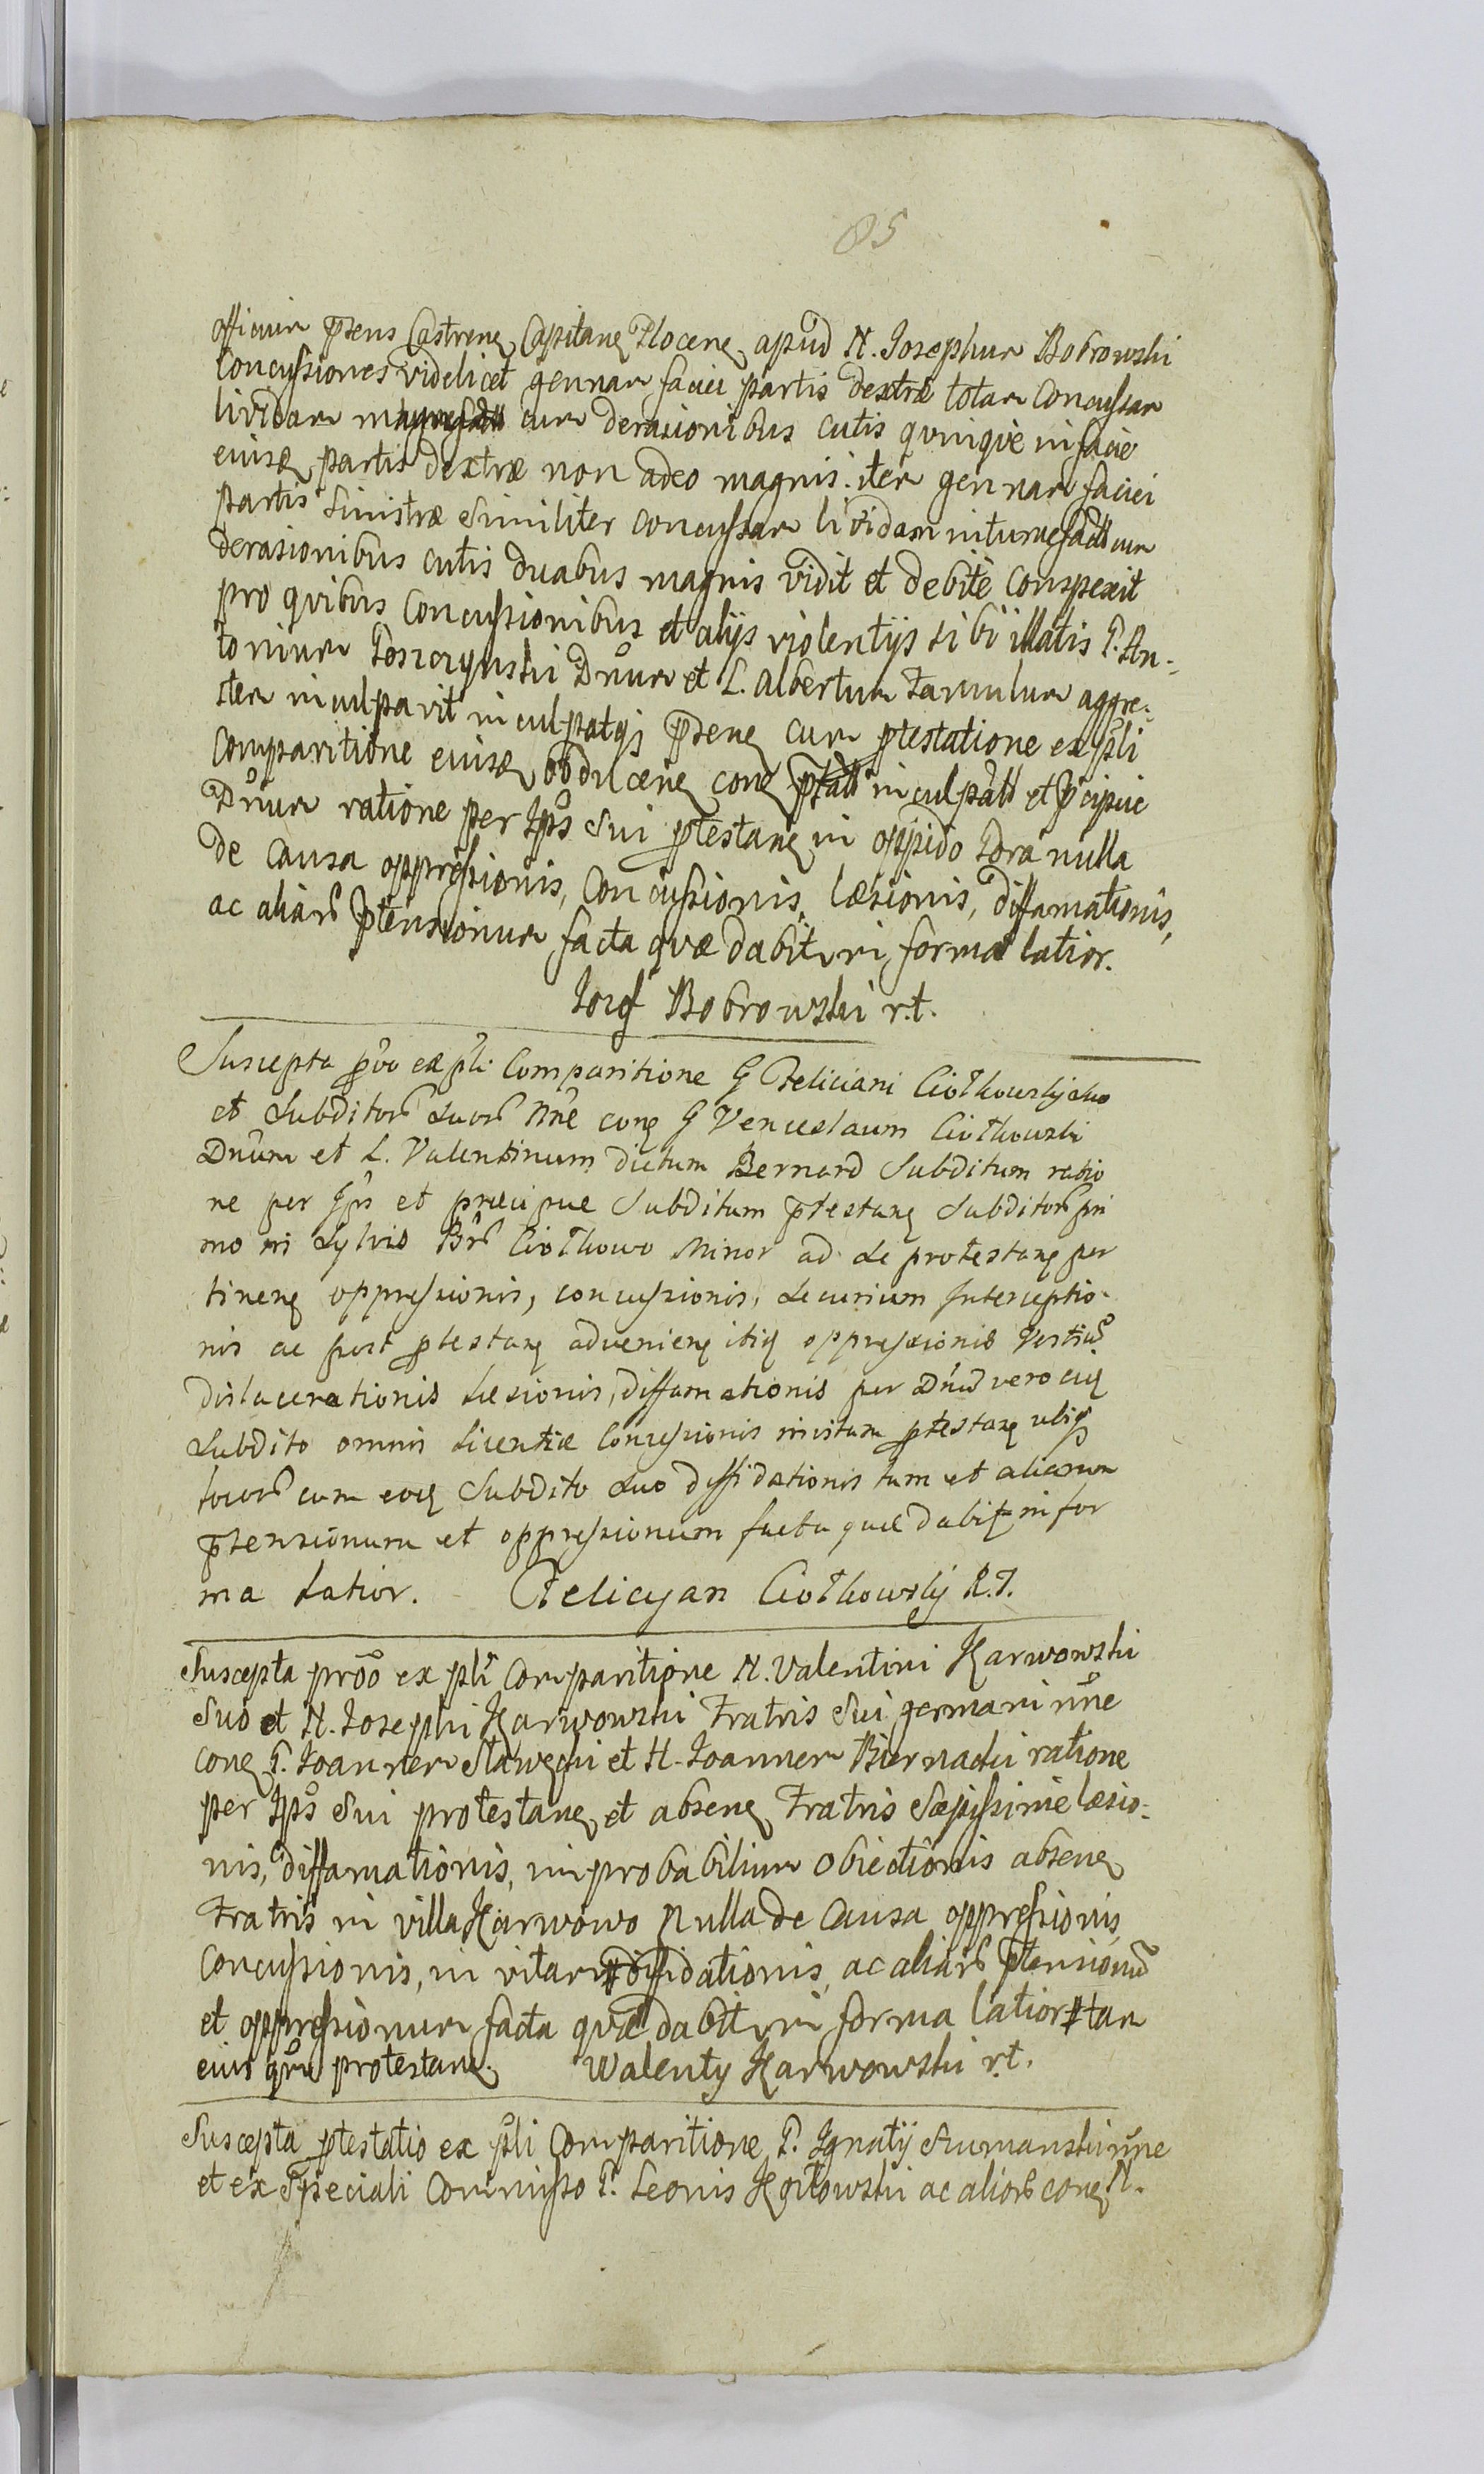 85
officium pttens Castrens Capitane Plocens apud N. Josephum Bobrowski
Concussiones videlicet gennam faciei partis dextræ totam Concussam
lividam cum derasionibus cutis qvinqve in facie
eiusd partis dextræ non adeo magnis. item gennam faciei
partis sinistræ similiter concussam lividam intumefactam cum
derasionibus cutis duabus magnis vidit et debite conspexit
pro qvibus Concussionibus et alijs violentijs sibi illatis P. An-
tonium Dnum et L. Albertum Famulum aggre-
ster inculpavit inculpatqz pttens cum ptestatione ex psli
Comparitione eiusd obducens cong inculpatt et pcipue
Dnum ratione per Ips sui ptestans in oppido Bora nulla
de causa oppressionis, Concussionis, læsionis, diffamationis,
ac aliar ptensionum facta qvæ dabitur in forma latior.
Jozef Bobrowski r.t.
Suscepta pōo ex psli Comparitione G Feliciani Ciołkowskj suo
et Subditor suor nne cong G Venceslaum Ciołkowski
Dnum et L. Valentinum dictum Bernard Subditum ratio
ne per Ips et præcipue Subditum ptestans Subditor pri
mo in Sylvis Br Ciołkowo Minor ad se protestans per
tinens oppressionis, concussionis, securium Interceptio-
nis ac post ptestans adveniens ibiq oppressionis Vestiu
dislacerationis læsionis, diffamationis per Dnum vero eiq
Subdito omnis licentiæ Concessionis invitam ptestans ubiqz
locor cum eoq Subdito suo diffidationis tum et aliarum
ptensionum et oppressionum facta quæ dabitr in for
ma latior. Felicyan Ciołkowskj R.T.
Suscepta prōo ex psli Comparitione N. Valentini Karwowski
Suo et N. Josephi Karwowski Fratris Sui germani nne
cong P. Joannem Sławęcki et N. Joannem Biernacki ratione
per Ips Sui protestans et absens Fratris Sæpissime læsio-
nis, diffamationis, improbabilium obiectionis absens
Fratris in villa Karwowo Nulla de Causa oppressionis,
concussionis, in vitam diffidationis, ac aliar ptensionum
et oppressionum facta qvæ dabitur in forma latior # tam
eius qm protestans. Walenty Karwowski r.t.
Suscepta ptestatio ex psli Comparitione P. Ignatij Szumanski nne
et ex Speciali Commisso P. Leonis Kozłowski ac alior cong N.